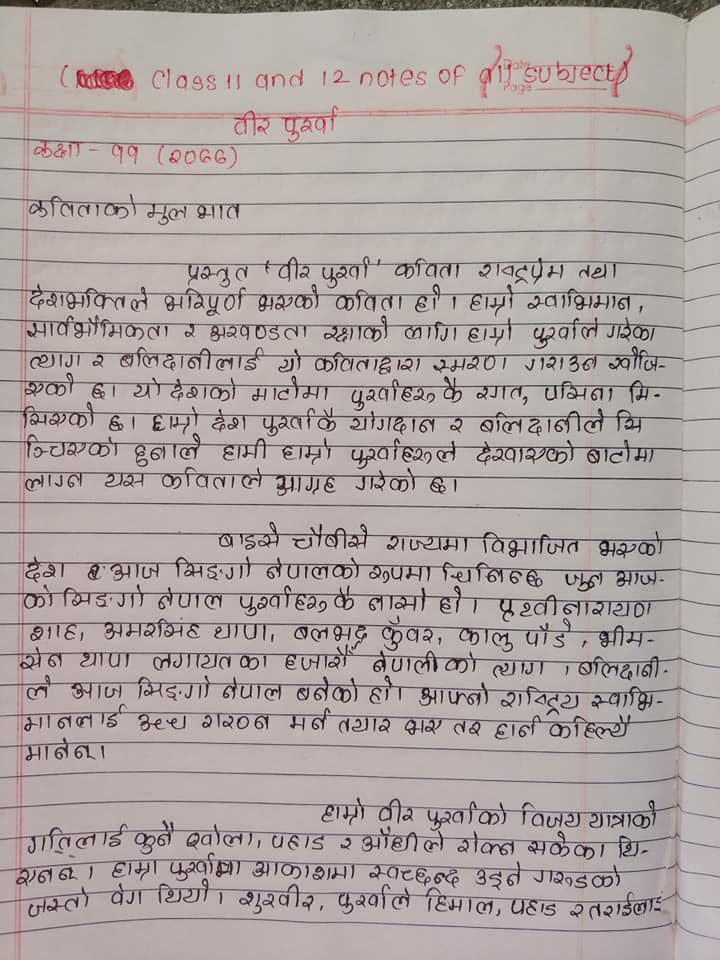 ( Class 11 and 12 notes of all subject)
Date
Page
वीर पुर्खा
कक्षा - ११ (२०७७)
कविताको मुल भाव
प्रस्तुत 'वीर पुर्खा' कविता राष्ट्रप्रेम तथा
देशभक्तिले भरिपूर्ण भएको कविता हो । हाम्रो स्वाभिमान,
सार्वभौमिकता र अखण्डता रक्षाको लागि हाम्रो पुर्खाले गरेका
त्याग र बलिदानीलाई यो कविताद्वारा स्मरण गराउन खोजि-
एको छ। यो देशको माटोमा पुर्खाहरुकै रगत, पसिना मि-
सिएको छ। हाम्रो देश पुर्खाकै योगदान र बलिदानीले सि
ञ्चिएको हुनाले हामी हाम्रो पुर्खाहरुले देखाएको बाटोमा
लाग्न यस कविताले आग्रह गरेको छ।
बाइसे चौबीसे राज्यमा विभाजित भएको
देश आज सिङ्गो नेपालको रुपमा चिनिन्छ जुन आज-
को सिङ्गो नेपाल पुर्खाहरुकै नासो हो। पृथ्वीनारायण
शाह, अमरसिंह थापा, बलभद्र कुँवर, कालु पाँडे, भीम-
सेन थापा लगायतका हजारौँ नेपालीको त्याग, बलिदानी-
ले आज सिङ्गो नेपाल बनेको हो। आफ्नो राष्ट्रिय स्वाभि-
मानलाई उच्च गराउन मर्न तयार भए तर हार्न कहिल्यै
मानेनन्।
हाम्रो वीर पुर्खाको विजय यात्राको
गतिलाई कुनै खोला, पहाड र आँधीले रोक्न सकेका थि-
एनन्। हाम्रा पुर्खामा आकाशमा स्वच्छन्द उड्ने गरुडको
जस्तो वेग थियो। शुरवीर, पुर्खाले हिमाल, पहाड र तराईलाई